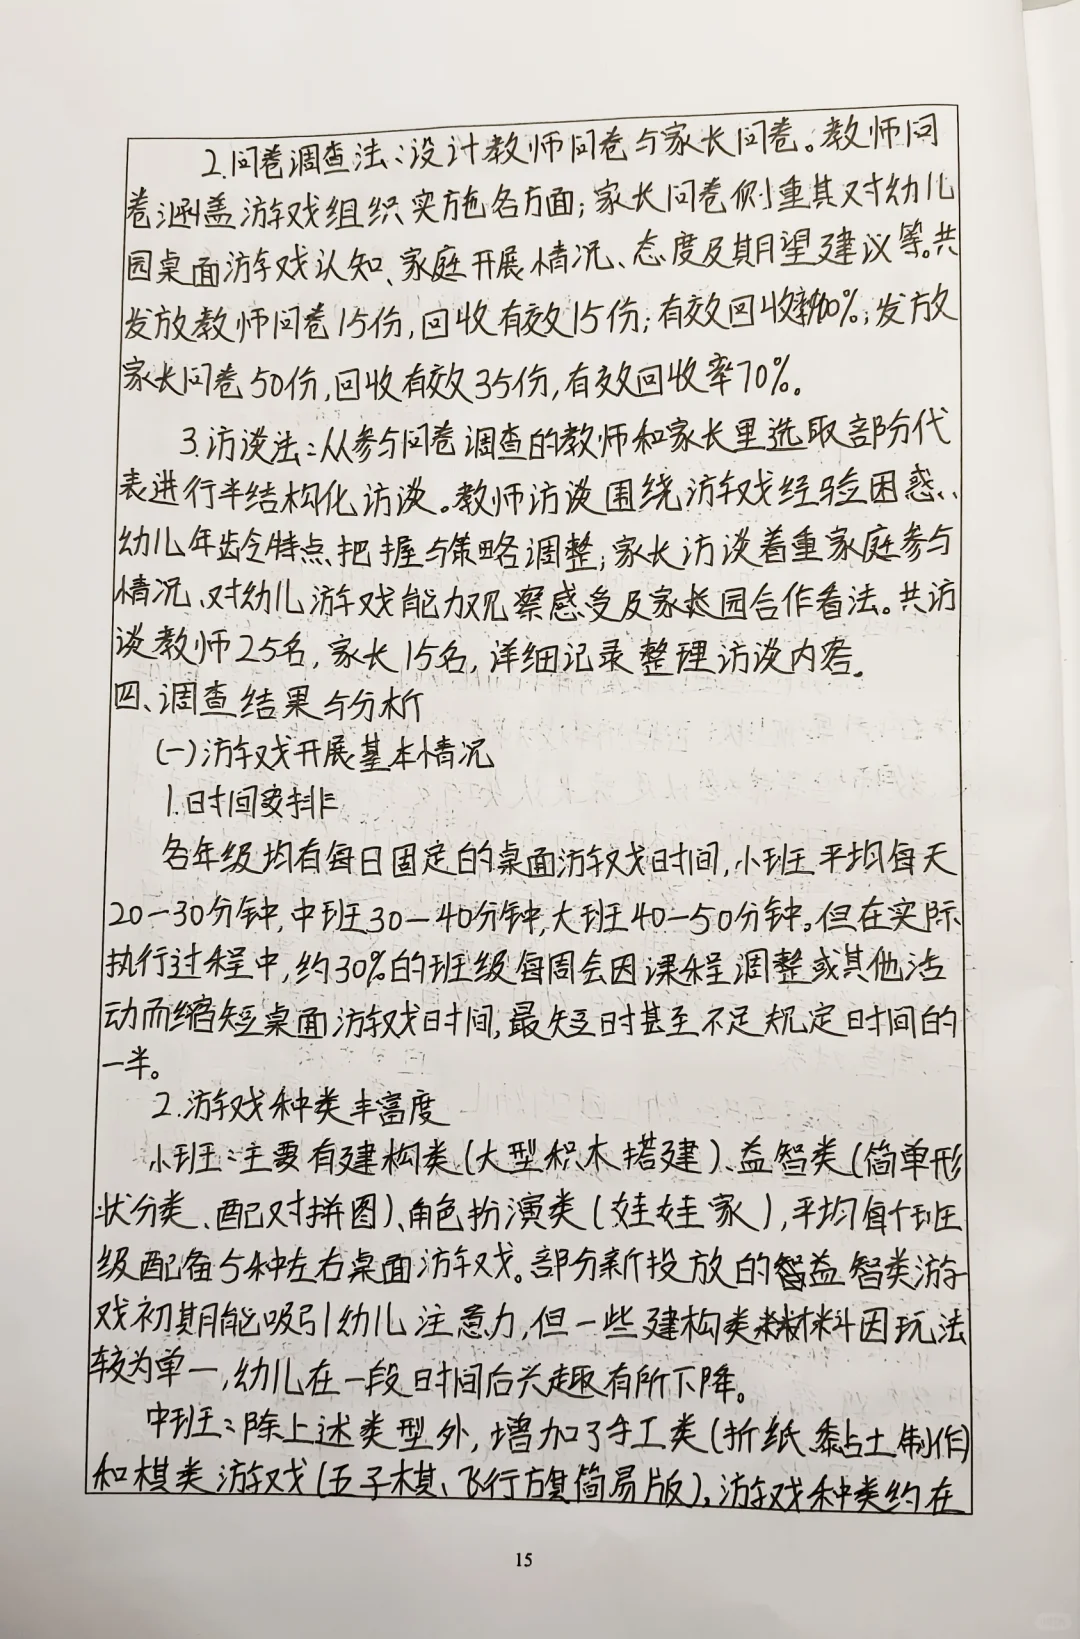 2.问卷调查法:设计教师问卷与家长问卷。教师问
卷涵盖游戏组织实施各方面;家长问卷侧重其对幼儿
园桌面游戏认知、家庭开展情况、态度及期望建议等。共
发放教师问卷15份,回收有效15份;有效回收率100%;发放
家长问卷50份,回收有效35份,有效回收率70%。
3.访谈法:从参与问卷调查的教师和家长里选取部分代
表进行半结构化访谈。教师访谈围绕游戏经验困惑、
幼儿年龄特点把握与策略调整;家长访谈着重家庭参与
情况、对幼儿游戏能力观察感受及家长园合作看法。共访
谈教师25名,家长15名,详细记录整理访谈内容。
四、调查结果与分析
(一)游戏开展基本情况
1.时间安排
各年级均有每日固定的桌面游戏时间,小班平均每天
20—30分钟,中班30—40分钟,大班40—50分钟。但在实际
执行过程中,约30%的班级每周会因课程调整或其他活
动而缩短桌面游戏时间,最短时甚至不足规定时间的
一半。
2.游戏种类丰富度
小班:主要有建构类(大型积木搭建)、益智类(简单形
状分类、配对拼图)、角色扮演类(娃娃家),平均每个班
级配备5种左右桌面游戏。部分新投放的益智类游
戏初期能吸引幼儿注意力,但一些建构类材料因玩法
较为单一,幼儿在一段时间后兴趣有所下降。
中班:除上述类型外,增加了手工类(折纸、黏土制作)
和棋类游戏(五子棋、飞行旗简易版)。游戏种类约在
15